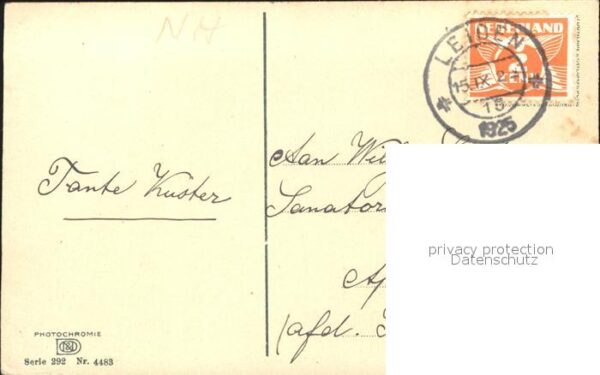 NH
NEDERLAND
LEIDEN
15.IX.2
15
1925
Tante Küster
Aan
Sanator
Ap
(afd.
privacy protection
Datenschutz
PHOTOCHROMIE
Serie 292 Nr. 4483